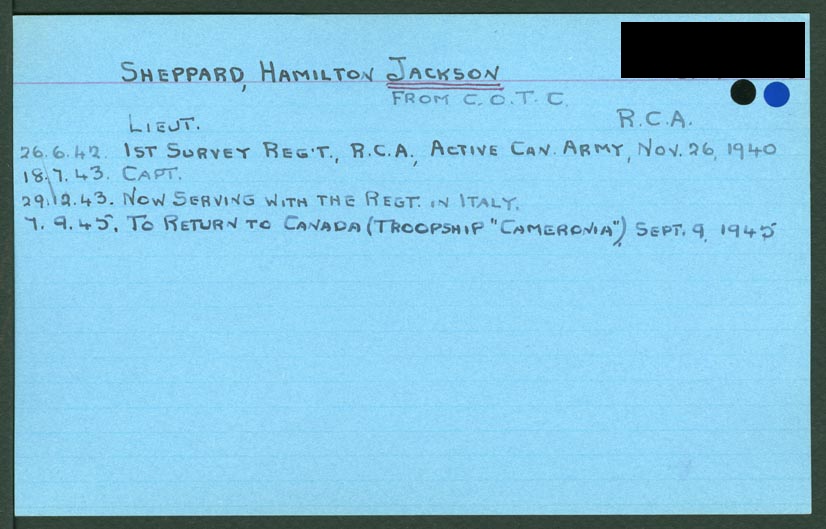 SHEPPARD, HAMILTON JACKSON
FROM C.O.T.C.
LIEUT. R.C.A.
26.6.42. 1ST SURVEY REG'T., R.C.A., ACTIVE CAN. ARMY, NOV. 26, 1940
18.7.43. CAPT.
29.12.43. NOW SERVING WITH THE REGT. IN ITALY.
7.9.45. TO RETURN TO CANADA (TROOPSHIP "CAMERONIA"), SEPT. 9, 1945